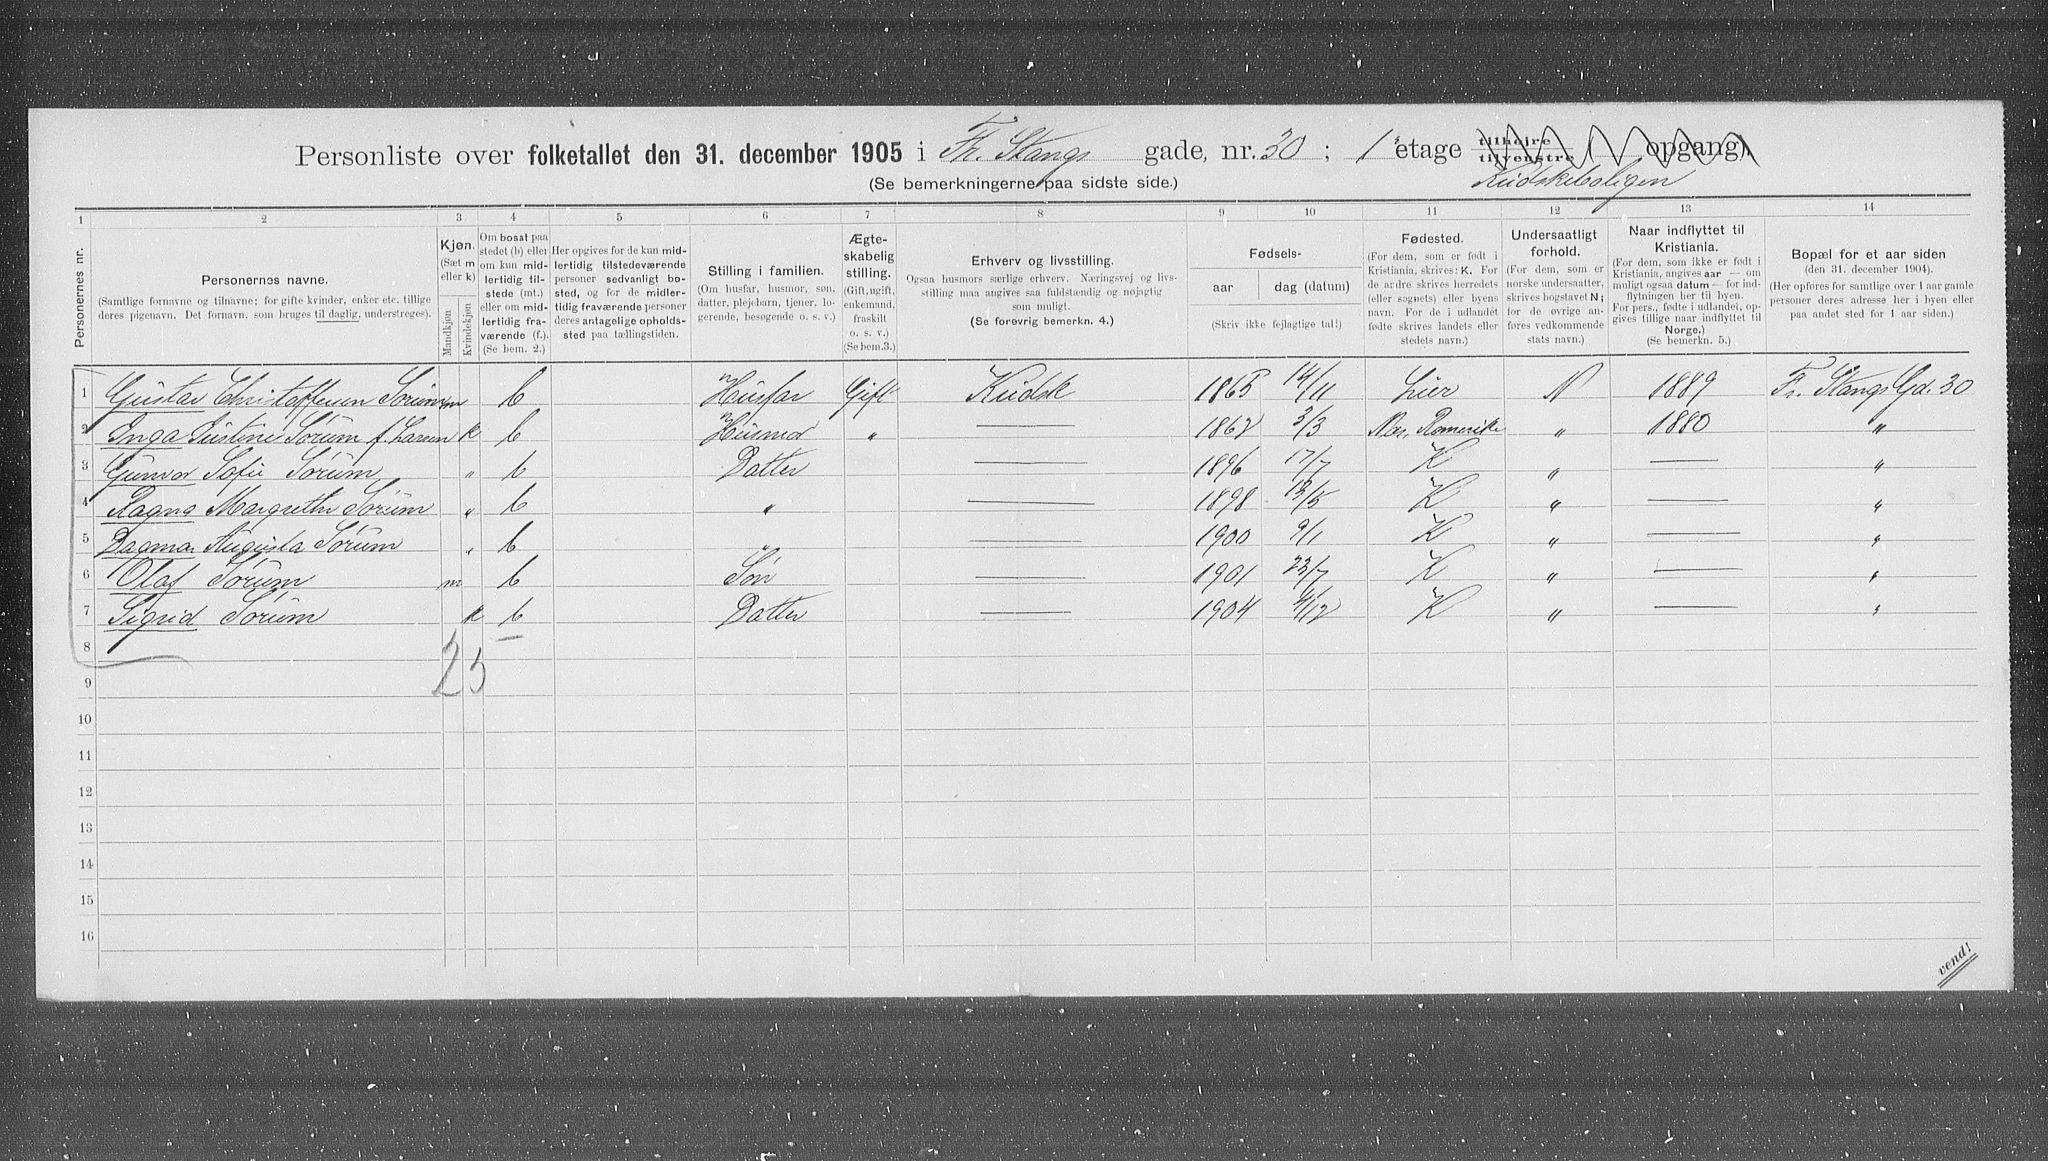 Personliste over folketallet den 31. december 1905 i Fr. Stangs gade, nr. 30 ; 1ste etage tilhøire tilvenstre ( opgang).
(Se bemerkningerne paa sidste side.) Kudskeboligen
1 2 3 4 5 6 7 8 9 10 11 12 13 14
Personernes nr.
Personernes navne.
(Samtlige fornavne og tilnavne; for gifte kvinder, enker etc. tillige
deres pigenavn. Det fornavn, som bruges til daglig, understreges).
Kjøn.
(Sæt m
eller k)
Mandkjøn
Kvindekjøn
Om bosat paa
stedet (b) eller
om kun mid-
lertidig til-
stede (mt.)
eller om mid-
lertidig fra-
værende (f.).
(Se bem. 2.)
Her opgives for de kun mid-
lertidig tilstedeværende
personer sedvanligt bo-
sted, og for de midler-
tidig fraværende personer
deres antagelige opholds-
sted paa tællingstiden.
Stilling i familien.
(Om husfar, husmor, søn,
datter, plejebarn, tjener, lo-
gerende, besøgende o. s. v.)
Ægte-
skabelig
stilling.
(Gift, ugift,
enkemand,
fraskilt
o. s. v.)
(Se bem.3.)
Erhverv og livsstilling.
Ogsaa husmors særlige erhverv. Næringsvej og livs-
stilling maa angives saa fuldstændig og nøjagtig
som muligt.
(Se forøvrig bemerkn. 4.)
Fødsels-
aar dag (datum)
(Skriv ikke fejlagtige tal!)
Fødested.
(For dem, som er født i
Kristiania, skrives: K. For
de andre skrives herredets
(eller sognets) eller byens
navn. For de i udlandet
fødte skrives landets eller
stedets navn.)
Undersaatligt
forhold.
(For dem, som er
norske undersaatter,
skrives bogstavet N;
for de øvrige an-
føres vedkommende
stats navn.)
Naar indflyttet til
Kristiania.
(For dem, som ikke er født i
Kristiania, angives aar — om
muligt ogsaa datum — for ind-
flytningen her til byen.
For pers., fødte i udlandet, op-
gives tillige naar indflyttet til
Norge.)
(Se bemerkn. 5.)
Bopæl for et aar siden
(den 31. december 1904).
(Her opføres for samtlige over 1 aar gamle
personer deres adresse her i byen eller
paa andet sted for 1 aar siden.)
1 Gustav Christoffersen Sørum m b Husfar Gift Kudsk 1865 14/11 Lier N 1889 Fr. Stangs Gd. 30
2 Inga Justine Sørum f. Larsen k b Husmor " — 1862 3/3 Nes, Romerike " 1880 "
3 Gunvor Sofie Sørum " b Datter — 1896 17/7 K " — "
4 Ragna Margrethe Sørum " b " — 1898 13/5 K " — "
5 Dagmar Augusta Sørum " b " — 1900 9/1 K " — "
6 Olaf Sørum m b Søn — 1901 23/7 K " — "
7 Sigrid Sørum k b Datter — 1904 4/12 K " — "
8
25
9
10
11
12
13
14
15
16
vend!